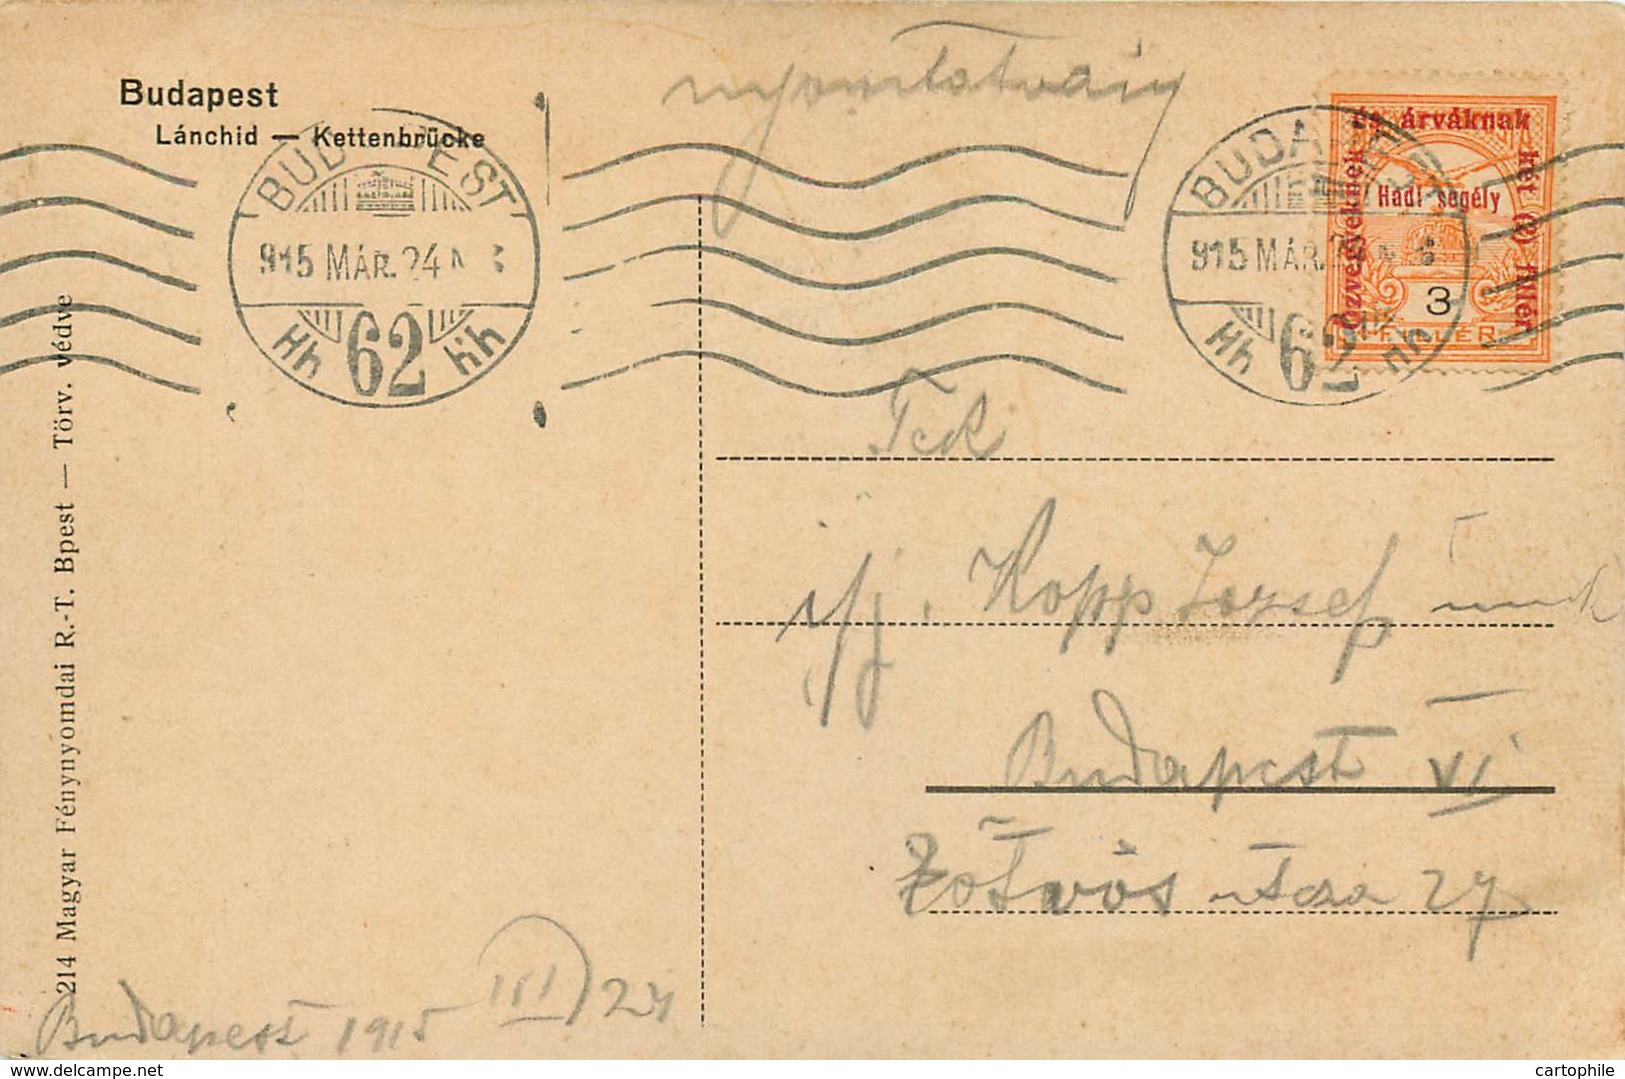 Budapest
Lánchid — Kettenbrücke
nyomtatvány
BUDAPEST
915 MÁR. 24
Hh 62 hh
BUDAPEST
915 MÁR.
Hh 62 hh
és árváknak
két (2) fillér
Özvegyeknek
Hadi segély
3
FILLÉR
Tek
ifj. Kopp József
Budapest VI
Eötvös utca 27
Budapest 1915 III/24
214 Magyar Fénynyomdai R.-T. Bpest — Törv. védve
delcampe.net
cartophile